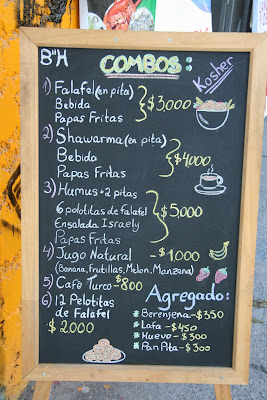 B"H
COMBOS:
Kosher
1) Falafel (en pita)
Bebida
Papas Fritas
$3,000
2) Shawarma (en pita)
Bebida
Papas Fritas
$4000
3) Humus + 2 pitas
6 polotitas de falafel
Ensalada Israely
Papas Fritas
$5,000
4) Jugo Natural - $1000
(Banana, Frutillas, Melon, Manzana)
5) Cafe Turco - $800
6) 12 Pelotitas
de Falafel
$2000
Agregado:
* Berenjena - $350
* Lafa - $450
* Huevo - $300
* Pan Pita - $300